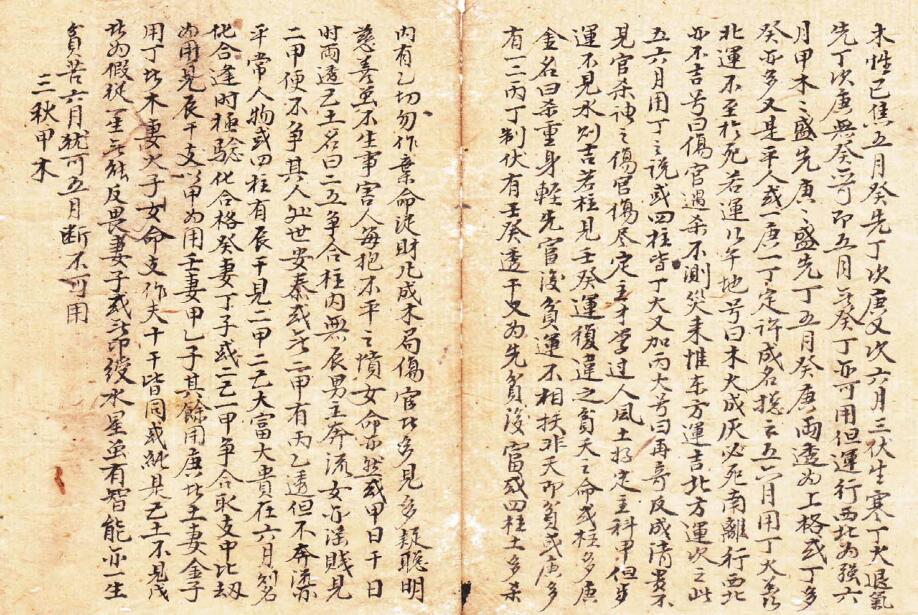 木性已焦五月癸先丁次庚又次六月三伏生寒丁火退氣
先丁次庚無癸亦可即五月乏癸丁亦可用但運行西北為強六
月甲木木盛先庚庚盛先丁五月癸庚兩透為上格或丁多
癸亦多又是平人或一庚一丁定許成名總之五六月用丁火莫
北運不至於死若運行午地号曰木火成灰必死南離行西北
亦不吉号曰傷官遇杀不測災来惟东方運吉北方運次之此
五六月用丁之说或四柱皆丁火又加丙火号曰再奇反成清貴不
見官杀神之傷官傷尽定主才学过人風土扬定主科甲但步
運不見水则吉若柱見壬癸運復違之貧夭之命或柱多庚
金名曰杀重身輕先富後貧運不相扶非夭即貧或庚多
有一二丙丁制伏有壬癸透干又为先貧後富或四柱土多杀
內有乙切勿作棄命從財凡成木局傷官此多見多疑聪明
慈善虽不生事害人每抱不平之憤女命亦然或甲日干日
时兩透己土名曰二土争合柱内無辰男主奔流女主淫賤見
二甲便不争其人处世安泰或乏二甲有丙乙透但不奔流
平常人物或四柱有辰干見二甲二己大富大貴在六月别名
化合逢时極驗化合格癸妻丁子或二己一甲争合取支中比劫
为用見辰干支以甲为用壬妻甲乙子其餘用庚此土妻金子
用丁此木妻火子女命支作夫十干皆同或純是己土不見戊
此为假從一生乏能反畏妻子或乏印绶水星虽有智能亦一生
貧苦六月犹可五月断不可用
三秋甲木